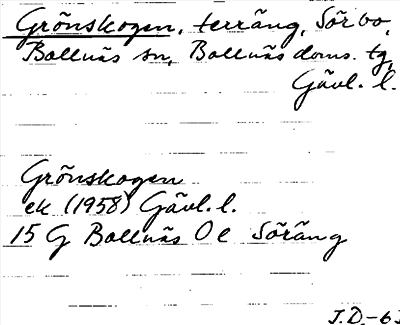 Grönskogen, terräng, Sörbo,
Bollnäs sn, Bollnäs doms. tg,
Gävl. l.
Grönskogen
ek (1958) Gävl. l.
15 G Bollnäs 0 e Söräng
J.D.-63